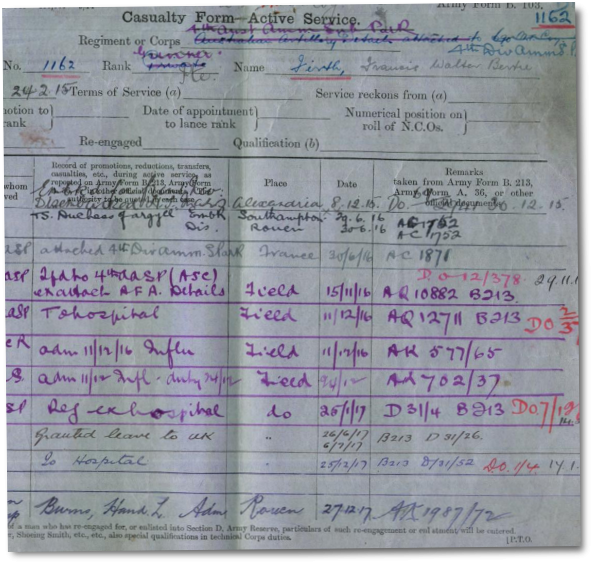 Army Form B. 103.
Casualty Form—Active Service. 1162
4th Aust Amm Sub Park
Regiment or Corps
4th Div Amm S P
Gunner
No. 1162 Rank Name Firth, Francis Walter
24 2 15 Terms of Service (a) Service reckons from (a)
motion to rank } Date of appointment to lance rank } Numerical position on roll of N.C.Os. }
Re-engaged Qualification (b)
whom
ved
Record of promotions, reductions, transfers, casualties, etc., during active service, as reported on Army Form B. 213, Army Form
Place
Date
Remarks
taken from Army Form B. 213, Army Form A. 36, or other official documents.
Alexandria 8.12.15 12.15
TS. Duchess of Argyll Emb Southampton 29.6.16 AC 1752
Dis. Rouen 30.6.16 AC 1752
ASP attached 4th Div Amm. S Park France 30/6/16 AC 1871
DO 12/378 29.11.1
ASP Tfd to 4th AASP (ASC)
ex attach A F A. Details Field 15/11/16 AQ 10882 B213.
ASP To hospital Field 11/12/16 AQ 12711 B213 DO 2/3
adm 11/12/16 Influ Field 11/12/16 AK 577/65
adm 11/12 Infl. duty 24/12 Field 24/12 Ad 702/37
SP Rej ex hospital do 25/1/17 D 31/4 B213 DO 7/
Granted leave to UK " 26/6/17 6/7/17 B213 D 31/26.
To Hospital " 25/12/17 B213 D/31/52 DO. 1/4. 14.1
Burns, Hand L. Adm Rouen 27.12.17 AK 1987/72
a man who has re-engaged for, or enlisted into Section D, Army Reserve, particulars of such re-engagement or enlistment will be entered.
r, Shoeing Smith, etc., etc., also special qualifications in technical Corps duties. [P.T.O.